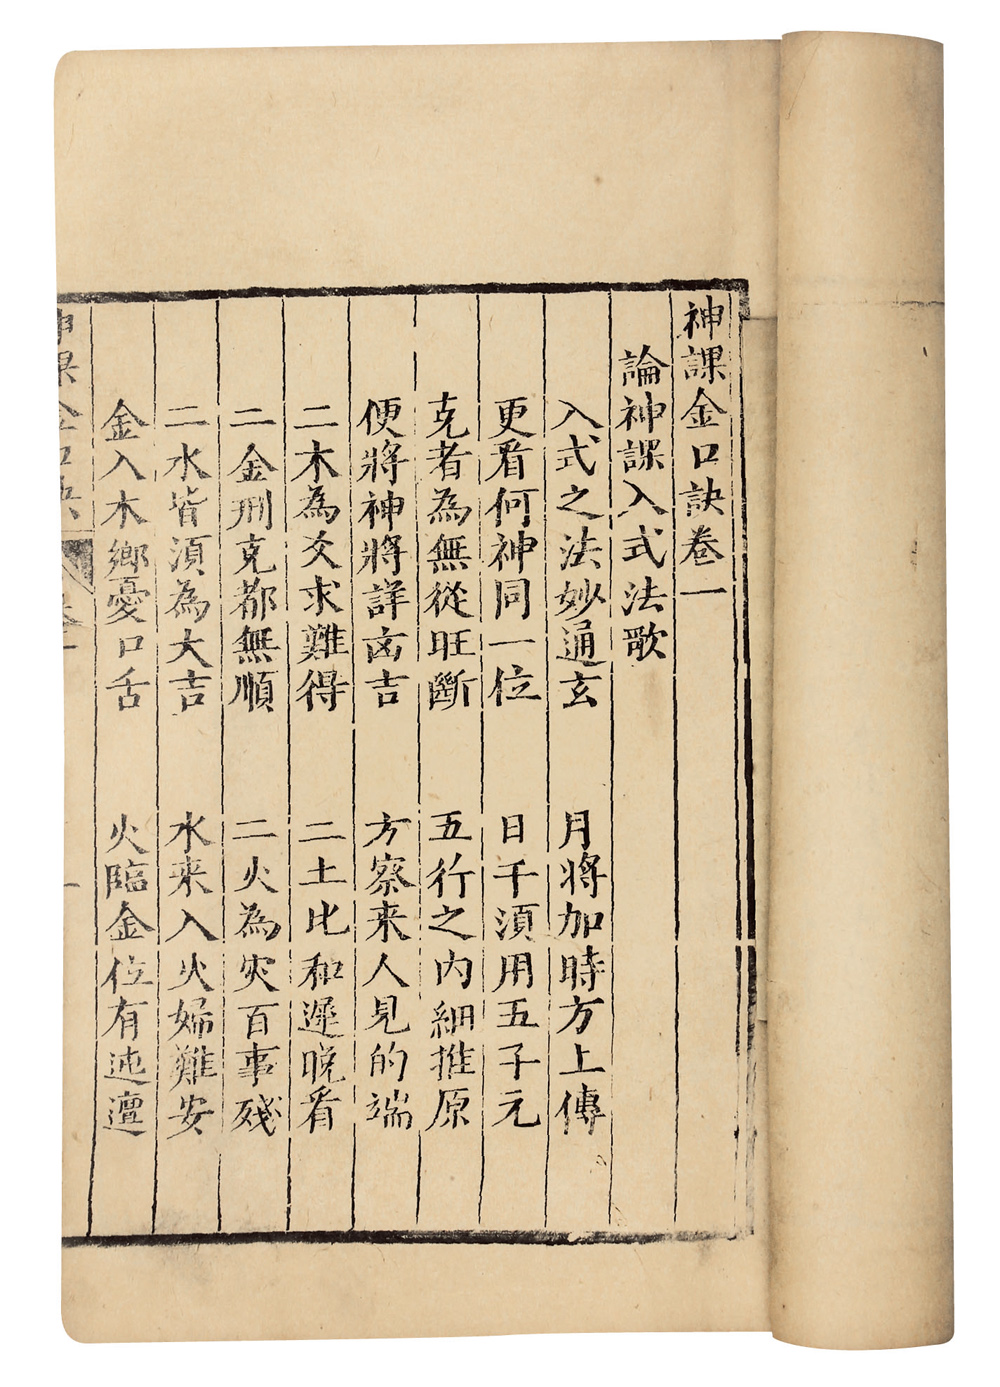 神課金口訣卷一
論神課入式法歌
入式之法妙通玄　月將加時方上傳
更看何神同一位　日干須用五子元
克者為無從旺斷　五行之內細推原
便將神將詳凶吉　方察来人見的端
二木為爻求難得　二土比和遲晚看
二金刑克都無順　二火為灾百事殘
二水皆須為大吉　水来入火婦難安
金入木鄉憂口舌　火臨金位有迍邅
神課金口訣　卷一　一